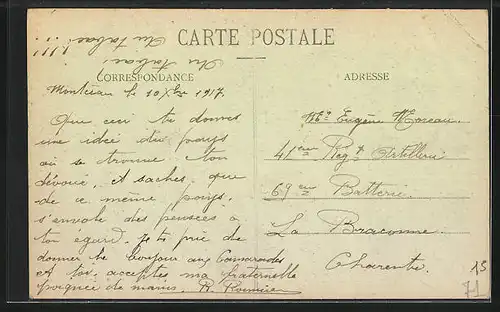 Au tabac! !!!
Au tabac!
CARTE POSTALE
CORRESPONDANCE
ADRESSE
le 10 Xbre 1917.
Que ceci te donnes
une idée du pays
où se trouve ton
dévoué, et saches que
de ce même pays,
s'envole des pensées à
ton égard. Je te prie de
donner le bonjour aux Camarades
et toi, acceptes ma fraternelle
poignée de mains. R.
Eugène Moreau.
41eme Regt Artillerie
69eme Batterie.
La Braconne.
Charente.
13
71